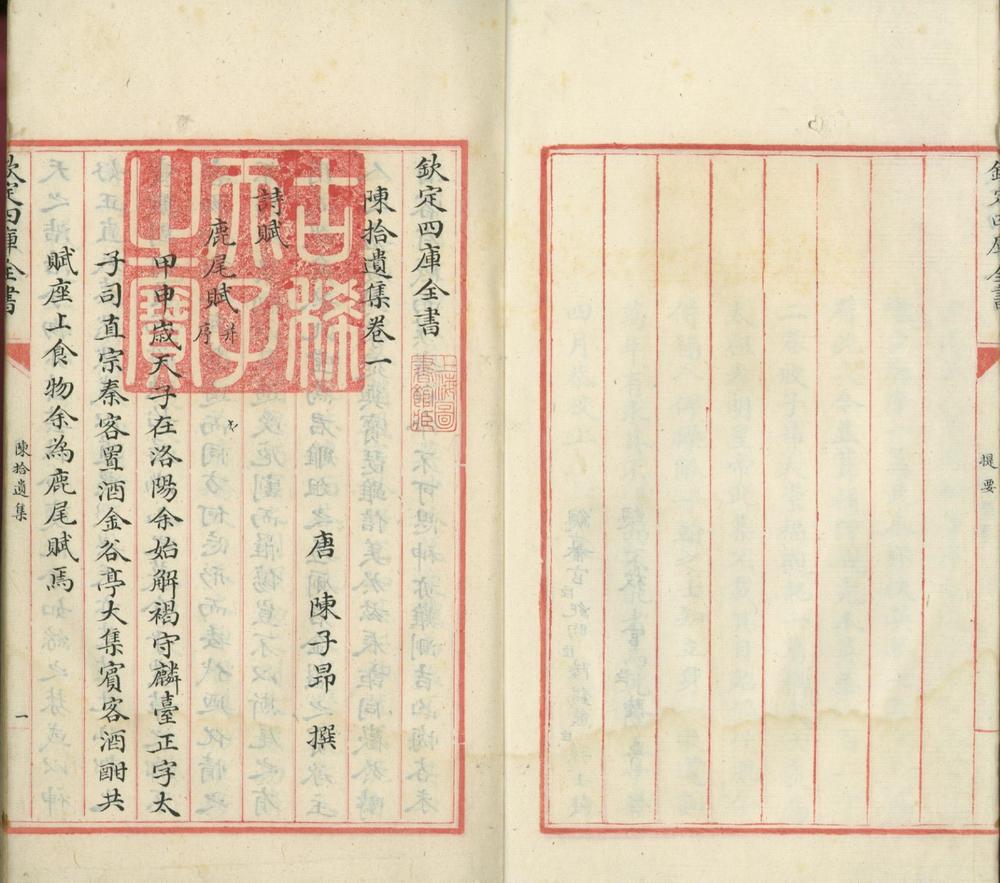 提要
欽定四庫全書
陳拾遺集卷一
唐 陳子昂 撰
詩賦
鹿尾賦并序
甲申歲天子在洛陽余始解褐守麟臺正字太
子司直宗秦客置酒金谷亭大集賓客酒酣共
賦座上食物余為鹿尾賦焉
欽定四庫全書
陳拾遺集
一
古稀
天子
之寶
上海圖
書館藏